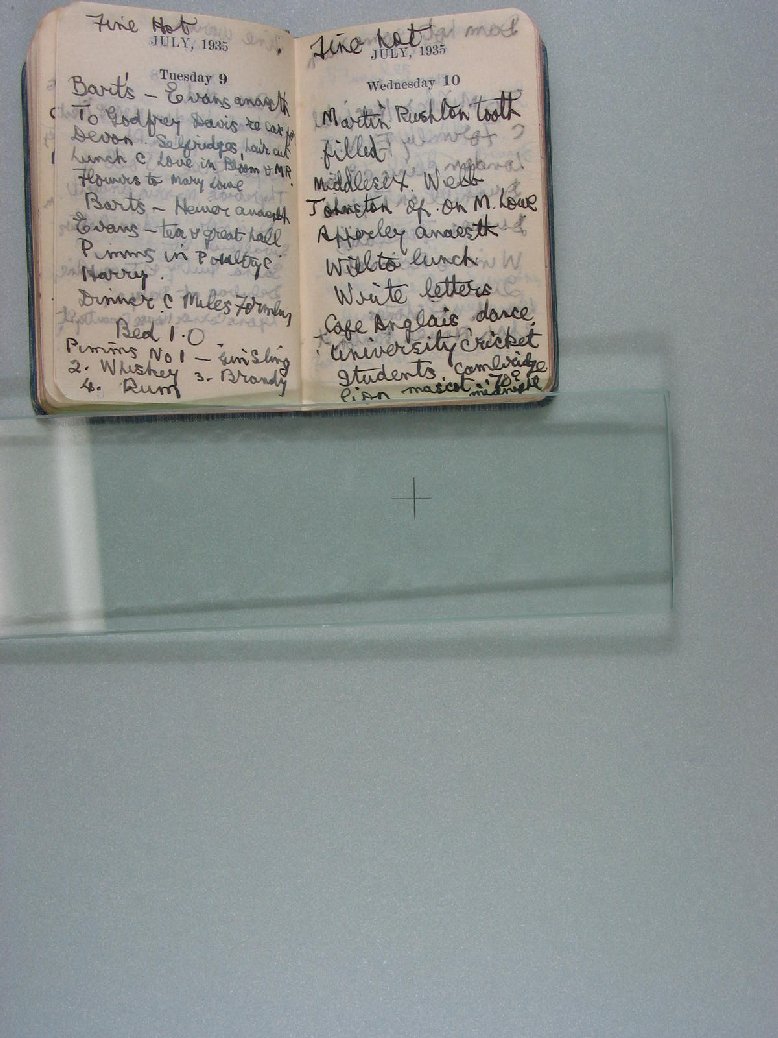 Fine Hot
JULY, 1935
Tuesday 9
Bart's – Evans anaesth
To Godfrey Davis re car for
Devon Selfridges, hair cut
Lunch c Love in Bloom & MR.
Flowers to Mary Lowe
Barts – Hewer anaesth
Evans – tea & great hall
Pimms in
Harry.
Dinner c Miles Formby
Bed 1.0
Pimms No 1 – Gin Sling
2. Whiskey 3. Brandy
4. Rum
Fine hot
JULY, 1935
Wednesday 10
Martin Rushton tooth
filled
Middlesex. Webb
Johnston op. on M. Lowe
Apperley anaesth
Will to lunch
Write letters
Cafe Anglais dance.
University cricket
Students. Cambridge
lion mascot
midnight